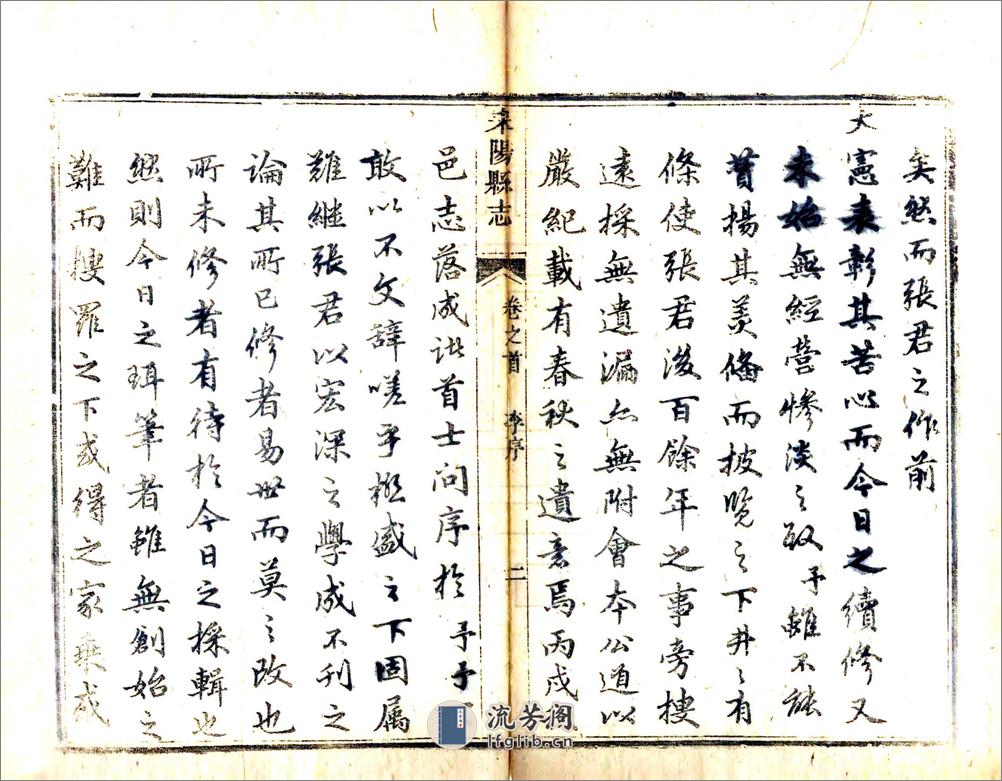 矣然而張君之作前
大憲表彰其苦心而今日之續修又
未始無經營慘淡之致予雖不能
贊揚其美備而披覽之下井〻有
條使張君後百餘年之事旁搜
遠採無遺漏亦無附會本公道以
嚴紀載有春秋之遺意焉丙戌
耒陽縣志 卷之首 李序 二
邑志落成諸首士問序於予予
敢以不文辭嗟乎極盛之下固属
難继張君以宏深之學成不刊之
論其所已修者易世而莫之改也
所未修者有待於今日之採輯也
然則今日之珥筆者雖無創始之
難而搜羅之下或得之家乗或
流芳阁
lfglib.cn